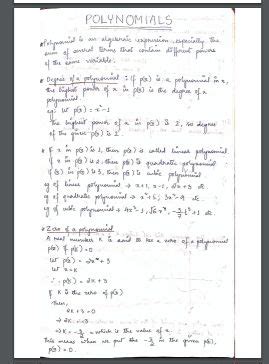 POLYNOMIALS
Polynomial is an algebraic expression, especially the
sum of several terms that contain different powers
of the same variable.
Degree of a polynomial : if p(x) is a polynomial in x,
the highest power of x in p(x) is the degree of a
polynomial.
eg: let p(x) = x²-1
The highest power of x in p(x) is 2, so degree
of the given p(x) is 2.
If x in p(x) is 1, then p(x) is called linear polynomial
if x in p(x) is 2, then p(x) is quadratic polynomial
if x in p(x) is 3, then p(x) is cubic polynomial
eg of linear polynomial → x+1, x-1,
eg of quadratic polynomial →
eg of cubic polynomial → 4x³-1,
Zero of a polynomial
A real number K is said to be a zero of a polynomial
p(x) if p(k) = 0
let p(x) = 2x+3
let x = K
∴ p(k) = 2k+3
if K is the zero of p(x)
Then,
2k+3 = 0
⇒ 2k = -3
⇒ k = -3/2 = which is the value of x.
This means when we put the -3/2 in the given p(x),
p(x) = 0.